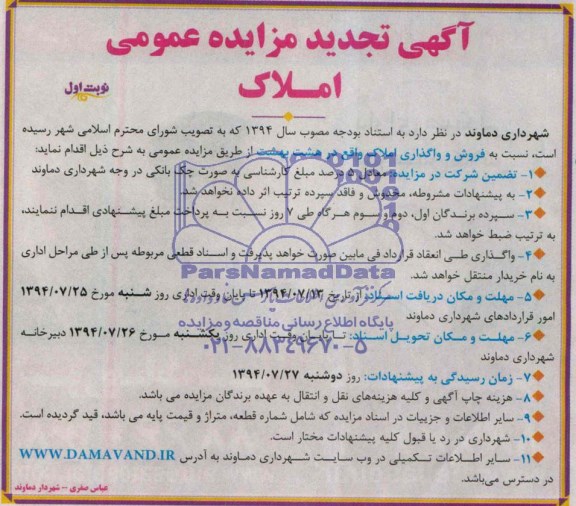 آگهی تجدید مزایده عمومی
املاک
نوبت اول
شهرداری دماوند در نظر دارد به استناد بودجه مصوب سال ۱۳۹۴ که به تصویب شورای محترم اسلامی شهر رسیده
است، نسبت به فروش و واگذاری املاک واقع در هشت بهشت از طریق مزایده عمومی به شرح ذیل اقدام نماید:
۱- تضمین شرکت در مزایده: معادل ۵ درصد مبلغ کارشناسی به صورت چک بانکی در وجه شهرداری دماوند
۲- به پیشنهادات مشروطه، مخدوش و فاقد سپرده ترتیب اثر داده نخواهد شد.
۳- سپرده برندگان اول، دوم و سوم هرگاه طی ۷ روز نسبت به پرداخت مبلغ پیشنهادی اقدام ننمایند،
به ترتیب ضبط خواهد شد.
۴- واگذاری طی انعقاد قرارداد فی مابین صورت خواهد پذیرفت و اسناد قطعی مربوطه پس از طی مراحل اداری
به نام خریدار منتقل خواهد شد.
ParsNamadData
۵- مهلت و مکان دریافت اسناد: از تاریخ ۱۳۹۴/۰۷/۱۳ تا پایان وقت اداری روز شنبه مورخ ۱۳۹۴/۰۷/۲۵
امور قراردادهای شهرداری دماوند
پایگاه اطلاع رسانی مناقصه و مزایده
۶- مهلت و مکان تحویل اسناد: تا پایان وقت اداری روز یکشنبه مورخ ۱۳۹۴/۰۷/۲۶ دبیرخانه
شهرداری دماوند
۰۲۱-۸۸۳۴۹۶۷۰-۵
۷- زمان رسیدگی به پیشنهادات: روز دوشنبه ۱۳۹۴/۰۷/۲۷
۸- هزینه چاپ آگهی و کلیه هزینه‌های نقل و انتقال به عهده برندگان مزایده می باشد.
۹- سایر اطلاعات و جزییات در اسناد مزایده که شامل شماره قطعه، متراژ و قیمت پایه می باشد، قید گردیده است.
۱۰- شهرداری در رد یا قبول کلیه پیشنهادات مختار است.
۱۱- سایر اطلاعات تکمیلی در وب سایت شهرداری دماوند به آدرس WWW.DAMAVAND.IR
در دسترس می‌باشد.
عباس صفری – شهردار دماوند